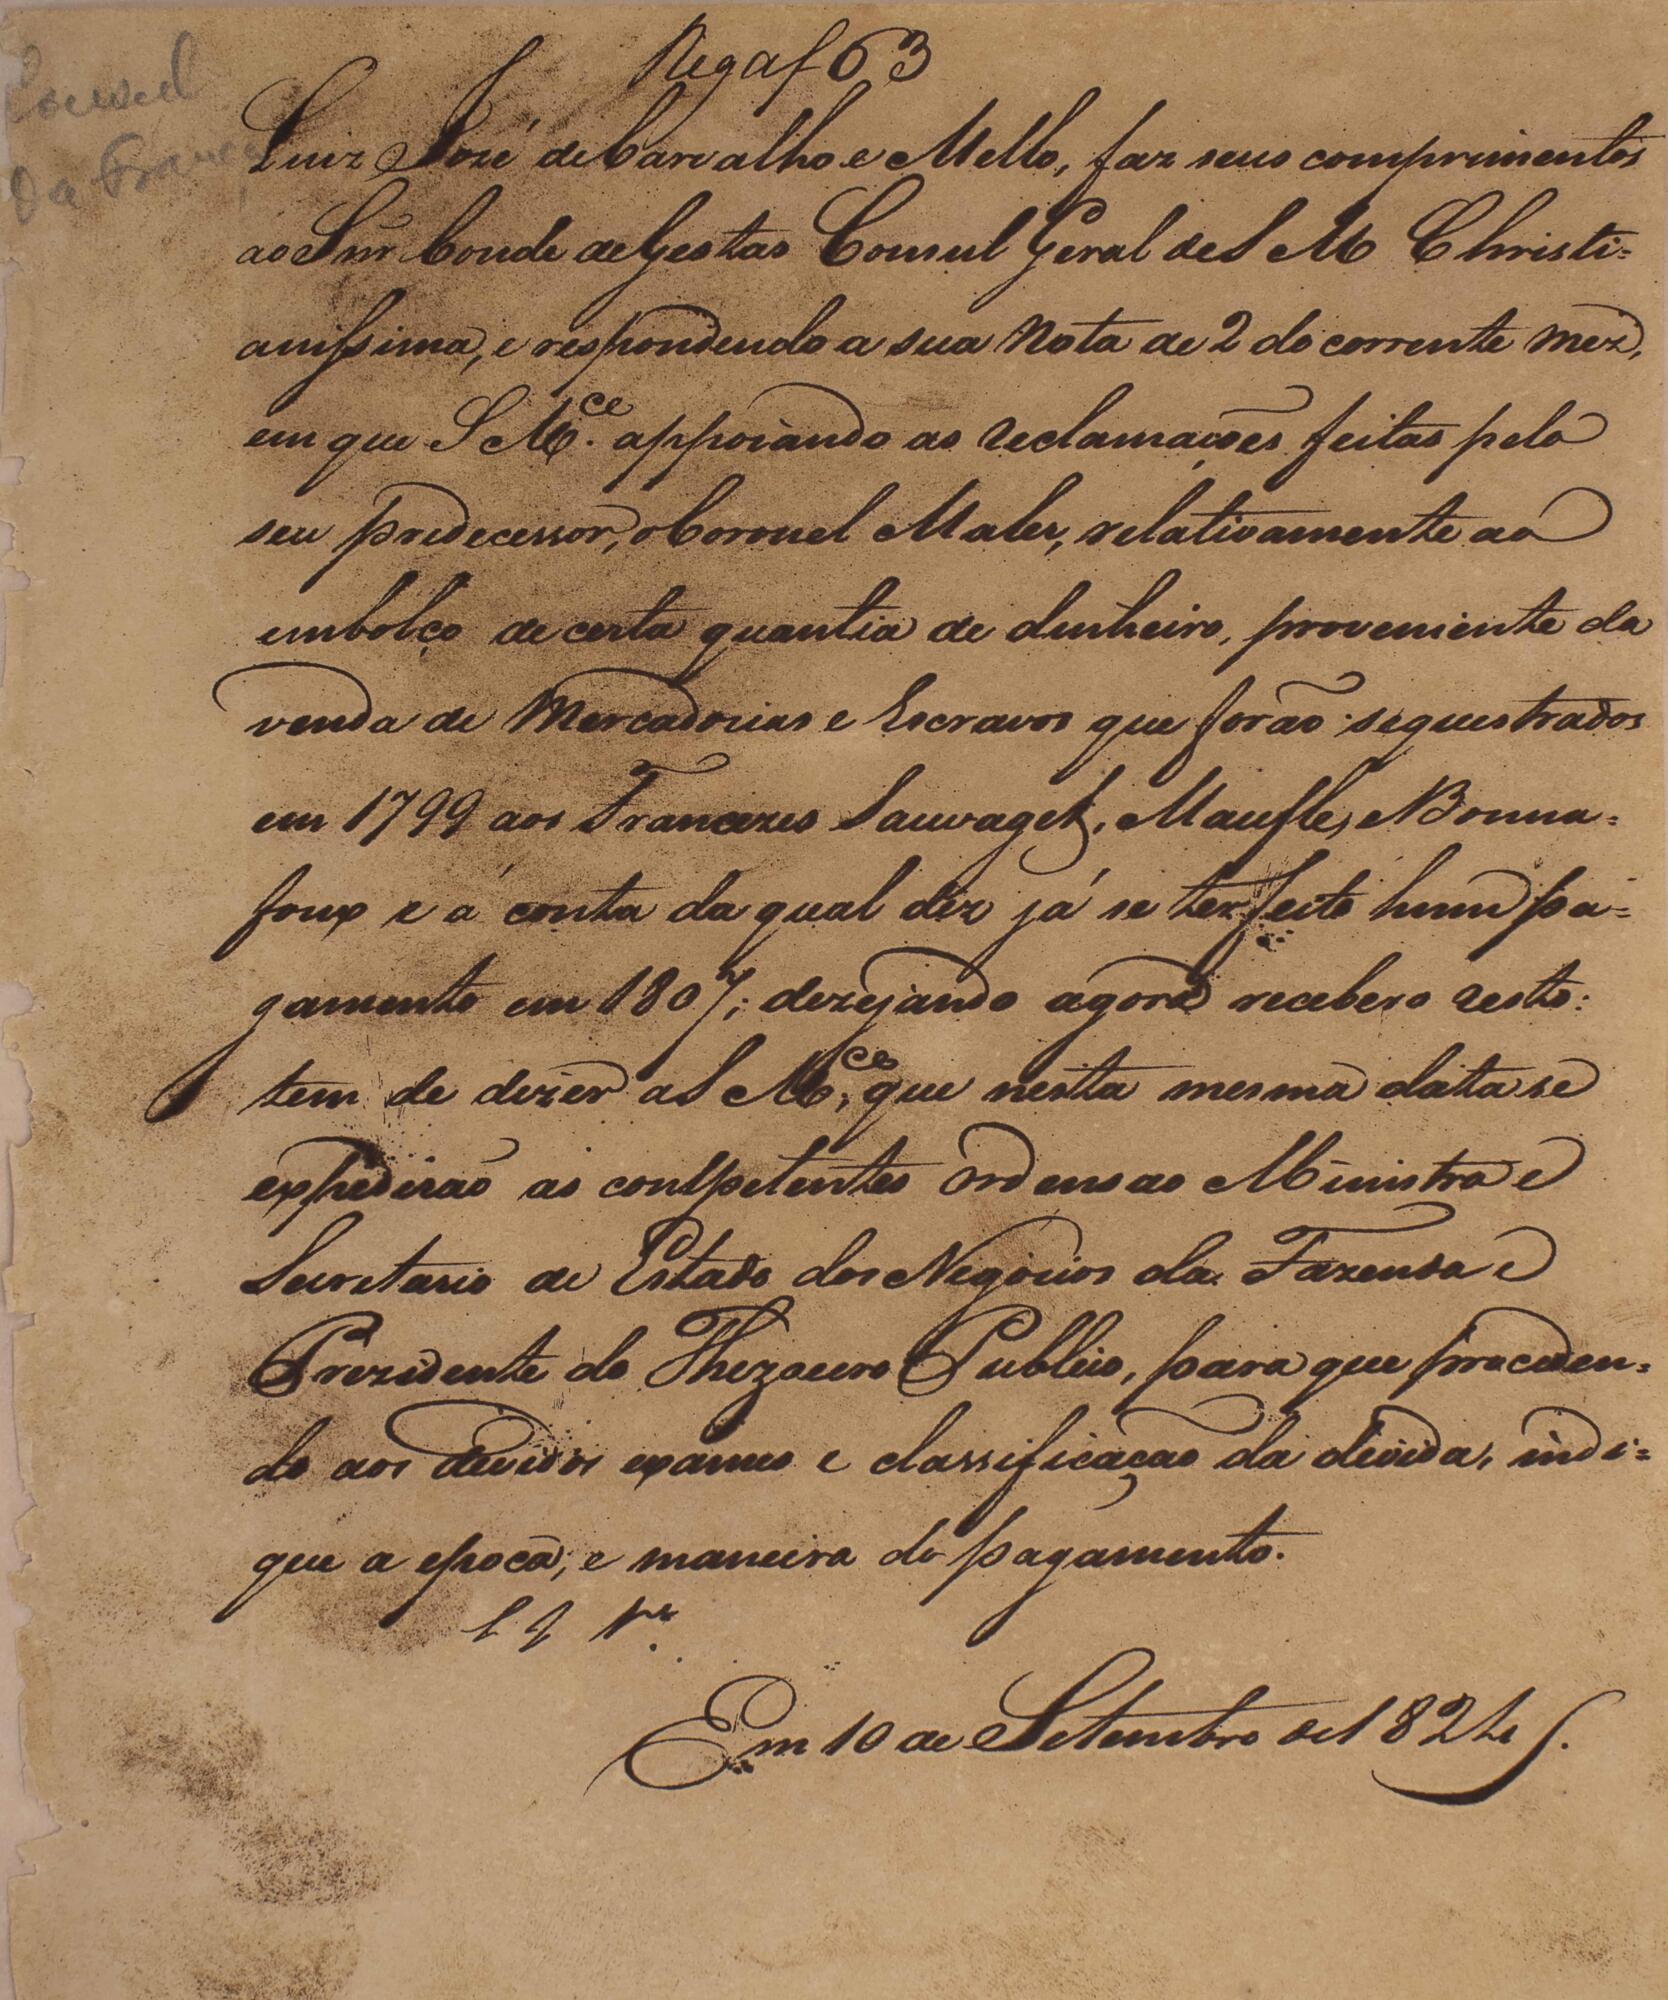 Reg a f 63
Consul
da França
Luiz José de Carvalho e Mello, faz seus comprimentos
ao Sñr Conde de Gestas Consul Geral de S M Christi=
anissima, e respondendo a sua Nota de 2 do corrente mez,
em que S M.ce appoiando as reclamações feitas pelo
seu predecessor, o Coronel Maler, relativamente ao
embolço de certa quantia de dinheiro, proveniente da
venda de Mercadorias e Escravos que forão sequestrados
em 1799 aos Francezes Sauvaget, Maufle, e Bonna=
foux e á conta da qual diz já se ter feito hum pa=
gamento em 1807; dezejando agora receber o resto:
tem de dizer a S M.ce, que nesta mesma data se
expedirão as competentes ordens ao Ministro e
Secretario de Estado dos Negocios da Fazenda e
Prezidente do Thezouro Publico, para que proceden=
do aos devidos exames e classificação da divida, indi=
que a epoca, e maneira do pagamento.
Em 10 de Setembro de 1824